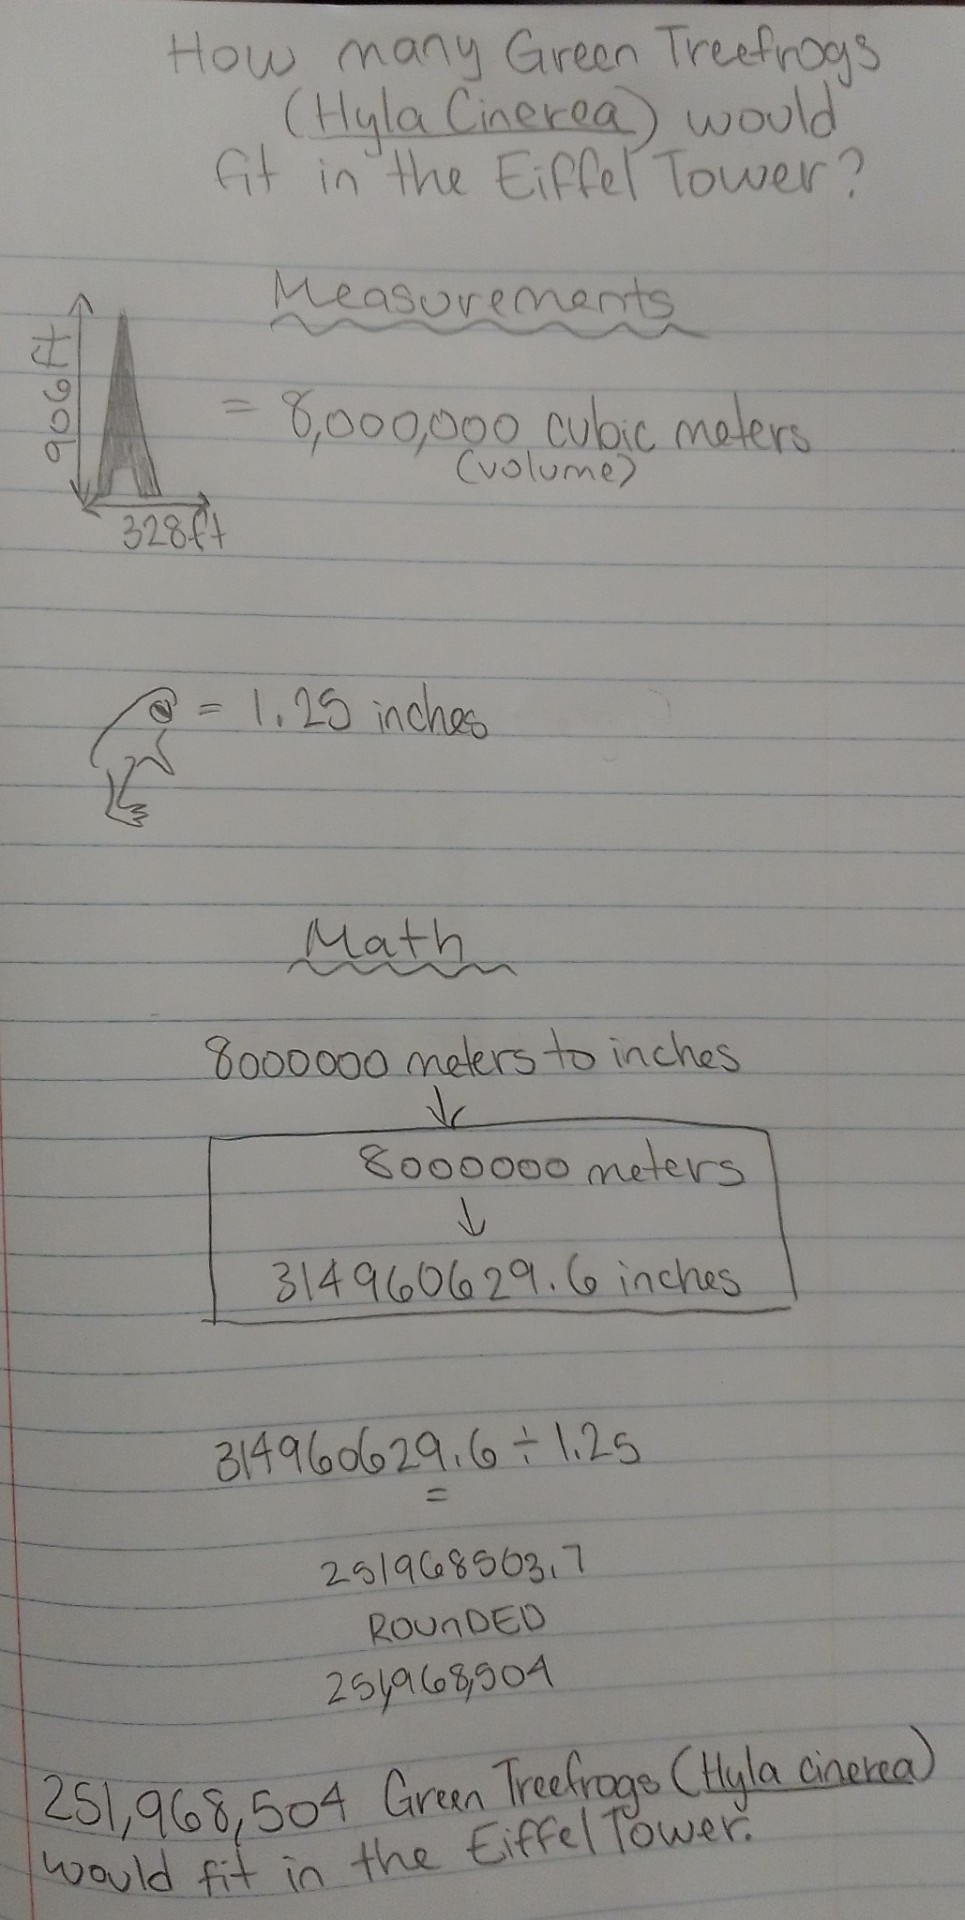 How many Green Treefrogs
(Hyla Cinerea) would
fit in the Eiffel Tower?
Measurements
906ft
= 8,000,000 cubic meters
(volume)
328ft
= 1.25 inches
Math
8000000 meters to inches
8000000 meters
314960629.6 inches
314960629.6 ÷ 1.25
=
251968503.7
ROUnDED
251,968,504
251,968,504 Green Treefrogs (Hyla cinerea)
would fit in the Eiffel Tower.